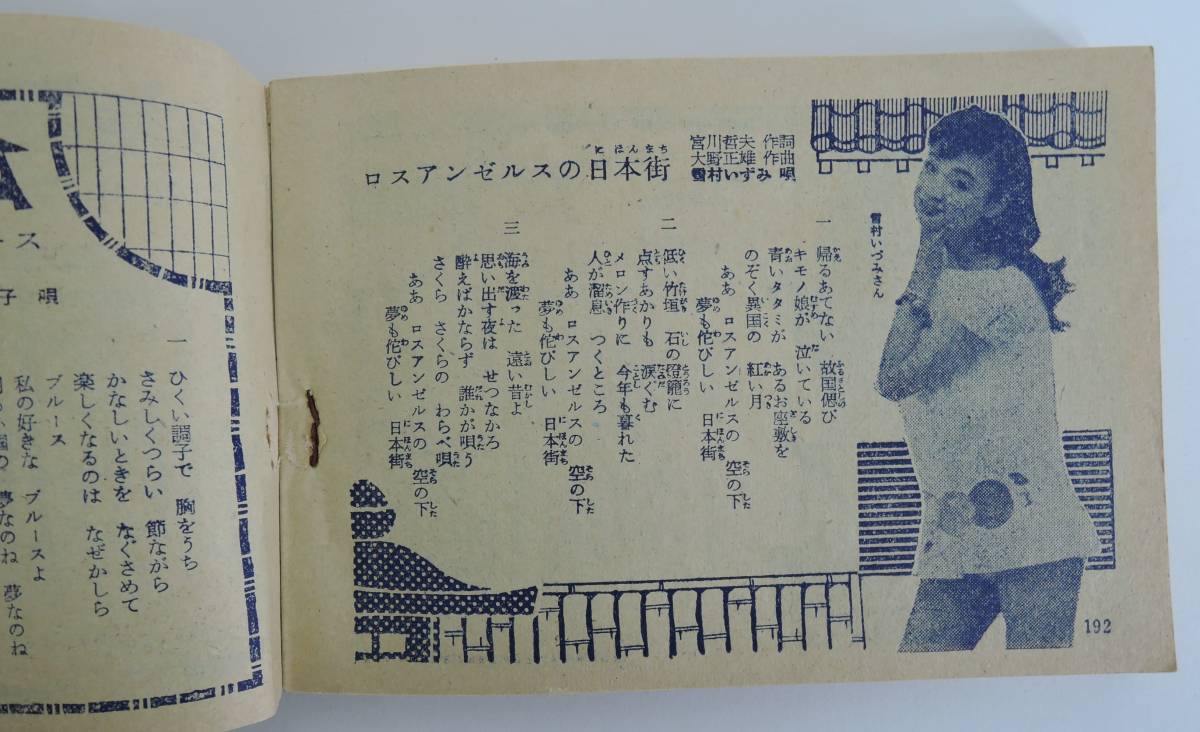 宮川哲夫 作詞
大野正雄 作曲
雪村いずみ 唄
ロスアンゼルスの日本街
雪村いづみさん
一
帰るあてない 故国偲び
キモノ娘が 泣いている
青いタタミが あるお座敷を
のぞく異国の 紅い月
ああ ロスアンゼルスの 空の下
夢も侘びしい 日本街
二
低い竹垣 石の燈籠に
点すあかりも 涙ぐむ
メロン作りに 今年も暮れた
人が溜息 つくところ
ああ ロスアンゼルスの 空の下
夢も侘びしい 日本街
三
海を渡った 遠い昔よ
思い出す夜は せつなかろ
酔えばかならず 誰かが唄う
さくら さくらの わらべ唄
ああ ロスアンゼルスの 空の下
夢も侘びしい 日本街
192
ース
子 唄
一
ひくい調子で 胸をうち
さみしくつらい 節ながら
かなしいときを なぐさめて
楽しくなるのは なぜかしら
ブルース ブルースよ
私の好きな 夢なのね 夢なのね